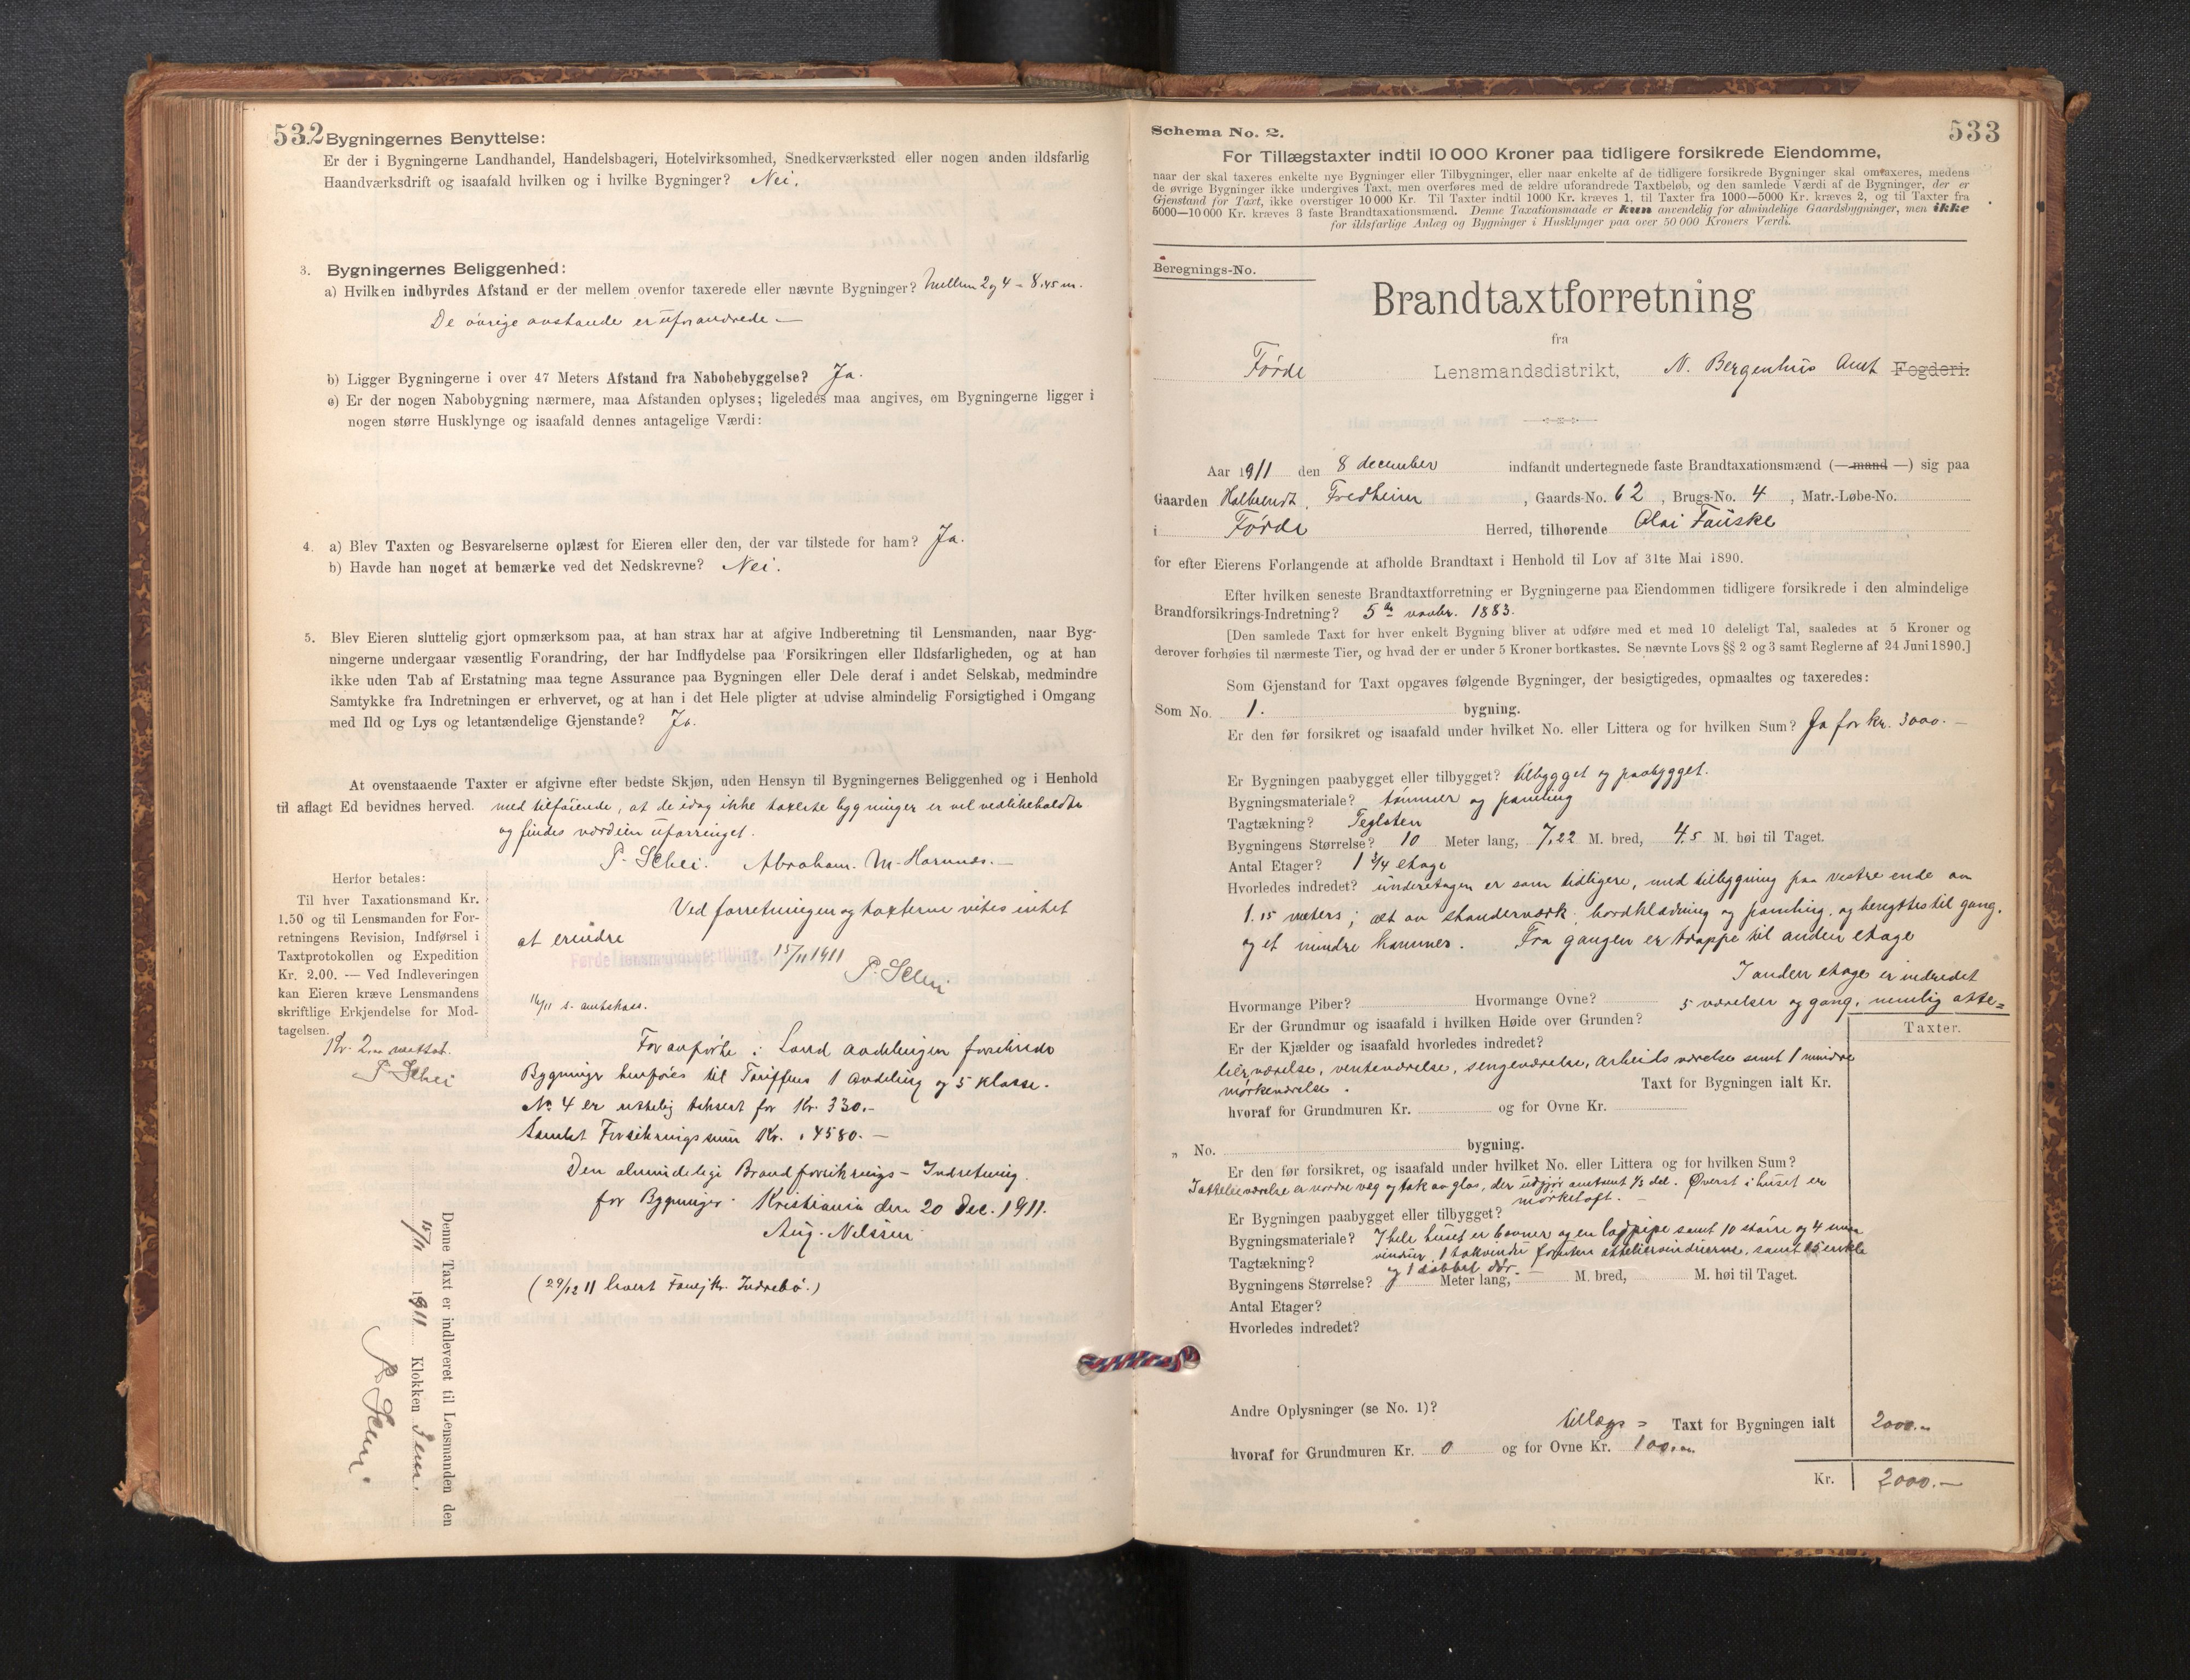 532
Bygningernes Benyttelse:
Er der i Bygningerne Landhandel, Handelsbageri, Hotelvirksomhed, Snedkerværksted eller nogen anden ildsfarlig
Haandværksdrift og isaafald hvilken og i hvilke Bygninger? Nei.
3. Bygningernes Beliggenhed:
a) Hvilken indbyrdes Afstand er der mellem ovenfor taxerede eller nævnte Bygninger? Mellem 2 og 4 = 8,45 m.
De övrige avstande er uforandrede —
b) Ligger Bygningerne i over 47 Meters Afstand fra Nabobebyggelse? Ja.
c) Er der nogen Nabobygning nærmere, maa Afstanden oplyses; ligeledes maa angives, om Bygningerne ligger i
nogen større Husklynge og isaafald dennes antagelige Værdi:
4. a) Blev Taxten og Besvarelserne oplæst for Eieren eller den, der var tilstede for ham? Ja.
b) Havde han noget at bemærke ved det Nedskrevne? Nei.
5. Blev Eieren sluttelig gjort opmærksom paa, at han strax har at afgive Indberetning til Lensmanden, naar Byg-
ningerne undergaar væsentlig Forandring, der har Indflydelse paa Forsikringen eller Ildsfarligheden, og at han
ikke uden Tab af Erstatning maa tegne Assurance paa Bygningen eller Dele deraf i andet Selskab, medmindre
Samtykke fra Indretningen er erhvervet, og at han i det Hele pligter at udvise almindelig Forsigtighed i Omgang
med Ild og Lys og letantændelige Gjenstande? Ja.
At ovenstaaende Taxter er afgivne efter bedste Skjøn, uden Hensyn til Bygningernes Beliggenhed og i Henhold
til aflagt Ed bevidnes herved. med tilföiende, at de idag ikke taxerte bygninger er vel vedlikeholdte
og findes værdien uforringet.
P. Schei. Abraham. M. Hornnes. —
Herfor betales:
Til hver Taxationsmand Kr.
1.50 og til Lensmanden for For-
retningens Revision, Indførsel i
Taxtprotokollen og Expedition
Kr. 2.00. — Ved Indleveringen
kan Eieren kræve Lensmandens
skriftlige Erkjendelse for Mod-
tagelsen.
Kr. 2,00 mottat.
P. Schei
Ved forretningen og taxterne vites intet
at erindre
Førde lensmandsbestilling 15/11 1911
P. Schei
16/11 s. amtskass.
Foranførte i Land avdelingen forsikrede
Bygninger henføres til Tariffens 1 Avdeling og 5 Klasse.
No 4 er rettelig taksert for Kr. 330.-
Samlet Forsikringssum Kr. 4580. —
Den almindelige Brandforsikrings- Indretning.
for Bygninger. Kristiania den 20 Dec. 1911.
Aug. Nilssen
(29/12 11 levert Indrebö.)
Denne Taxt er indleveret til Lensmanden den
15/11 1911 Klokken
P. Schei
533
Schema No. 2.
For Tillægstaxter indtil 10 000 Kroner paa tidligere forsikrede Eiendomme,
naar der skal taxeres enkelte nye Bygninger eller Tilbygninger, eller naar enkelte af de tidligere forsikrede Bygninger skal omtaxeres, medens
de øvrige Bygninger ikke undergives Taxt, men overføres med de ældre uforandrede Taxtbeløb, og den samlede Værdi af de Bygninger, der er
Gjenstand for Taxt, ikke overstiger 10 000 Kr. Til Taxter indtil 1000 Kr. kræves 1, til Taxter fra 1000—5000 Kr. kræves 2, og til Taxter fra
5000—10 000 Kr. kræves 3 faste Brandtaxationsmænd. Denne Taxationsmaade er kun anvendelig for almindelige Gaardsbygninger, men ikke
for ildsfarlige Anlæg og Bygninger i Husklynger paa over 50 000 Kroners Værdi.
Beregnings-No.
Brandtaxtforretning
fra
Førde Lensmandsdistrikt, N. Bergenhus Amt Fogderi.
Aar 1911 den 8 december indfandt undertegnede faste Brandtaxationsmænd (— mand —) sig paa
Gaarden Halbrendt, Fredheim, Gaards-No. 62, Brugs-No. 4, Matr.-Løbe-No.
i Førde Herred, tilhørende Olai Fauske
for efter Eierens Forlangende at afholde Brandtaxt i Henhold til Lov af 31te Mai 1890.
Efter hvilken seneste Brandtaxtforretning er Bygningerne paa Eiendommen tidligere forsikrede i den almindelige
Brandforsikrings-Indretning? 5te novbr. 1883.
[Den samlede Taxt for hver enkelt Bygning bliver at udføre med et med 10 deleligt Tal, saaledes at 5 Kroner og
derover forhøies til nærmeste Tier, og hvad der er under 5 Kroner bortkastes. Se nævnte Lovs §§ 2 og 3 samt Reglerne af 24 Juni 1890.]
Som Gjenstand for Taxt opgaves følgende Bygninger, der besigtigedes, opmaaltes og taxeredes:
Som No. 1. bygning.
Er den før forsikret og isaafald under hvilket No. eller Littera og for hvilken Sum? Ja for kr. 3000. —
Er Bygningen paabygget eller tilbygget? tilbygget og paabygget.
Bygningsmateriale? tömmer og paneling
Tagtækning? Teglsten
Bygningens Størrelse? 10 Meter lang, 7,22 M. bred, 4,5 M. høi til Taget.
Antal Etager? 1 3/4 etage
Hvorledes indredet? underetagen er som tidligere, med tilbygning paa vestre ende av
1.15 meters; alt av standerværk, bordklædning og paneling, og benyttes til gang,
og et mindre kammer. Fra gangen er trappe til anden etage
I anden etage er indredet
Hvormange Piber? Hvormange Ovne? 5 værelser og gang, nemlig atte=
Er der Grundmur og isaafald i hvilken Høide over Grunden?
Taxter.
Er der Kjælder og isaafald hvorledes indredet?
lierværelse, venteværelse, sengeværelse, arbeidsværelse samt 1 mindre
mørkeværelse. Taxt for Bygningen ialt Kr.
hvoraf for Grundmuren Kr. og for Ovne Kr.
„ No. bygning.
Er den før forsikret, og isaafald under hvilket No. eller Littera og for hvilken Sum?
I attelierværelse er nordre væg og tak av glas, der utgjør omtrent 1/3 del. Øverst i huset er
mørkeloft. —
Er Bygningen paabygget eller tilbygget?
Bygningsmateriale? I hele huset er 6 ovner og en pipe samt 10 større og 4 mindre
vinduer, 1 takvindu foruten atteliervinduerne, samt 15 enkle
Tagtækning?
og 1 dobbel dör. —
Bygningens Størrelse? Meter lang, M. bred, M. høi til Taget.
Antal Etager?
Hvorledes indredet?
Andre Oplysninger (se No. 1)?
tillægs = Taxt for Bygningen ialt 2000.—
hvoraf for Grundmuren Kr. 0 og for Ovne Kr. 100.—
Kr. 2000.—